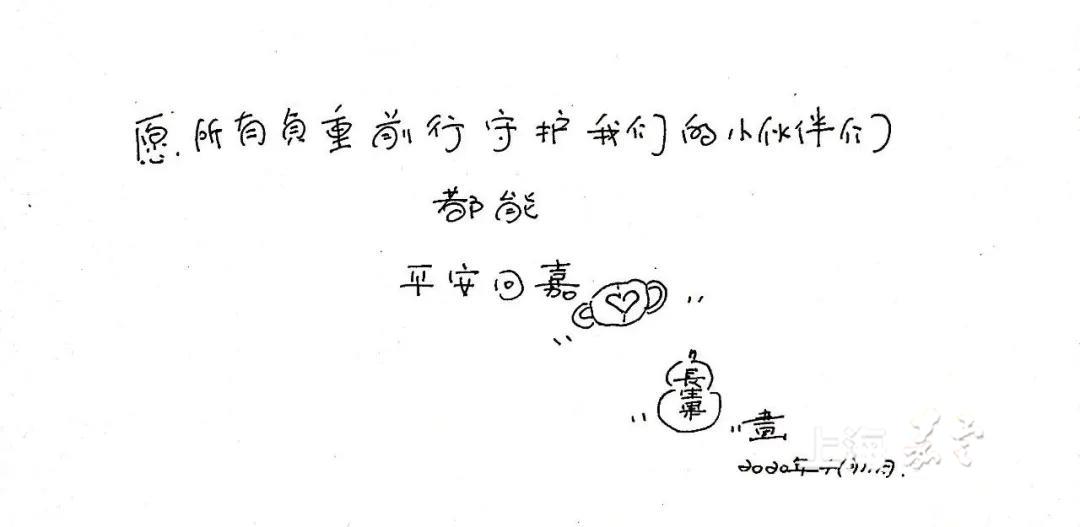 愿所有负重前行守护我们的小伙伴们
都能
平安回嘉
長生果
畫
上海嘉定
2020年